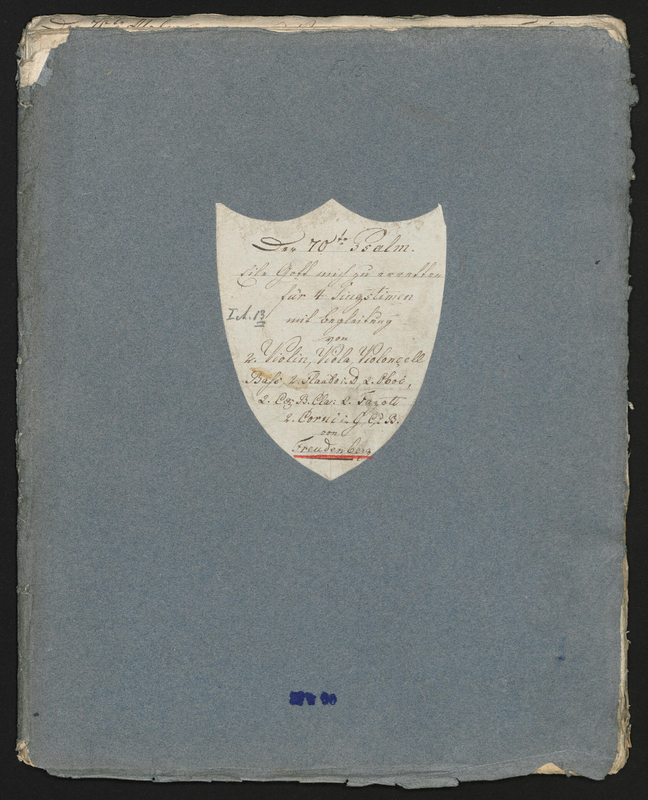 Der 70te Psalm.
Eile Gott mich zu erretten
für 4 Singstimen
I.A. 13
mit begleitung
von
2. Violin, Viola, Violoncell
Bass, 2. Flauto: D, 2. Oboe,
2. C & B. Cla: 2. Fagott
2. Corni: G
von
Freudenberg